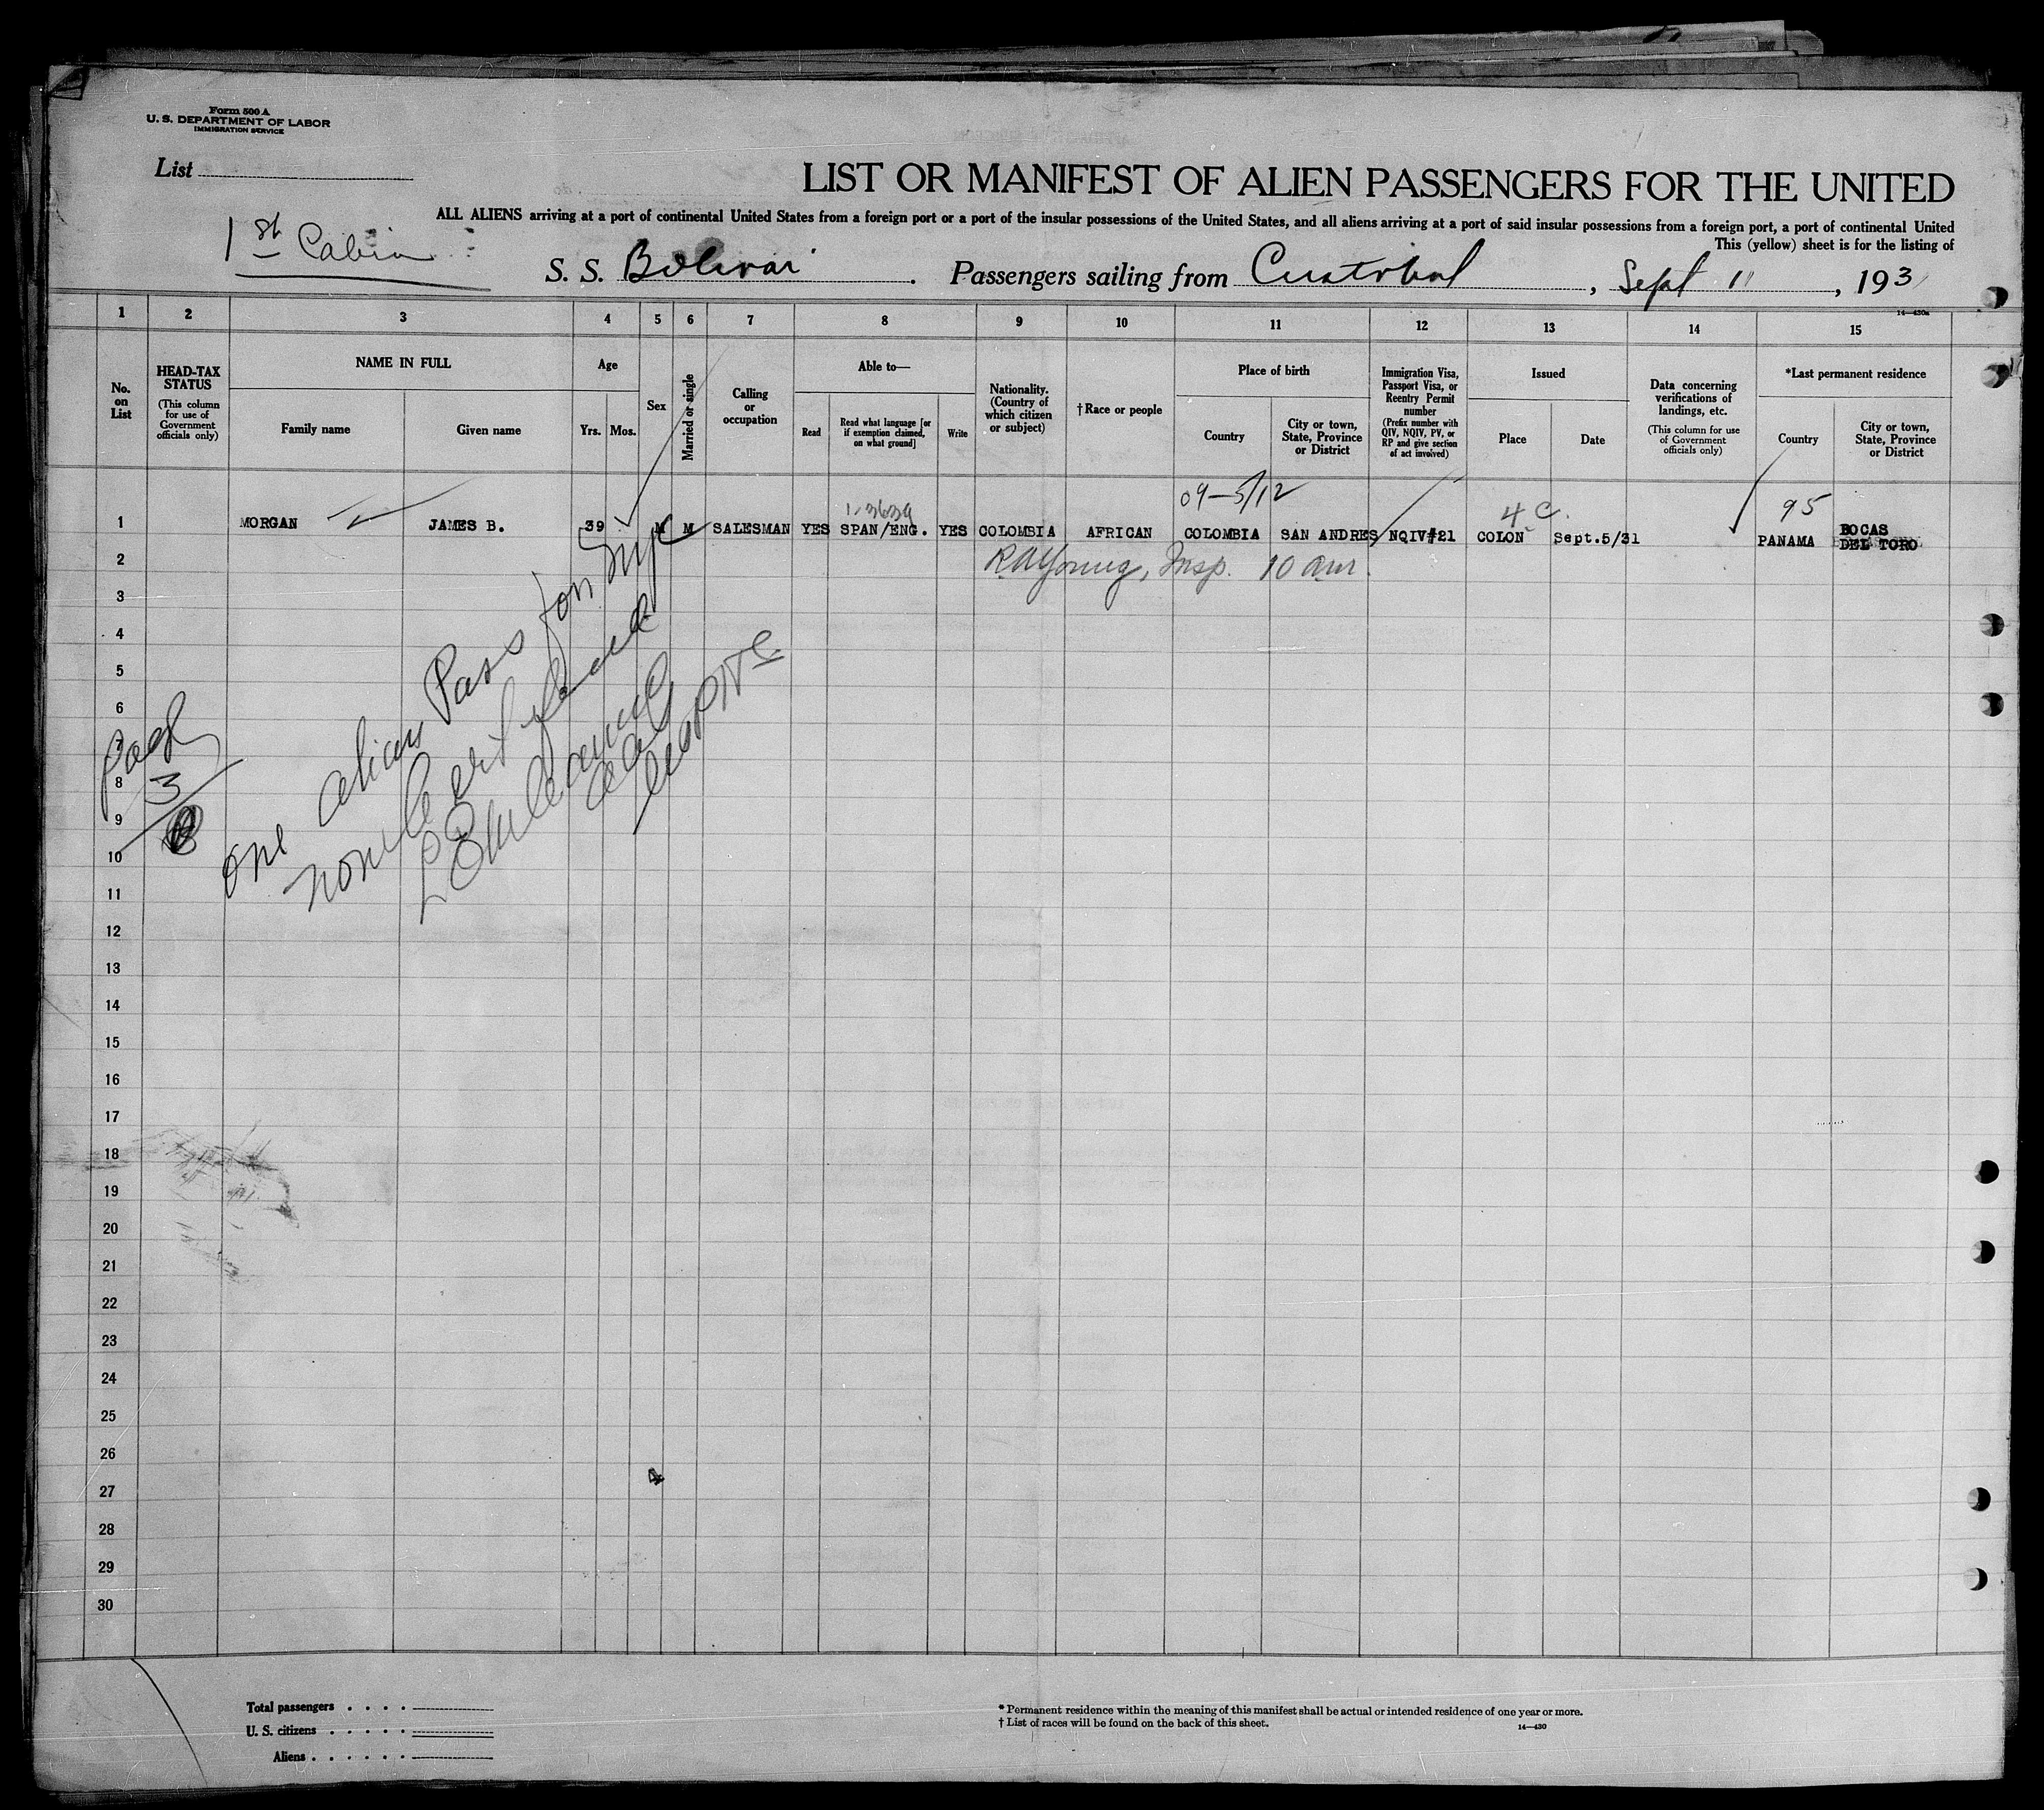 Form 500 A
U. S. DEPARTMENT OF LABOR
IMMIGRATION SERVICE
List
LIST OR MANIFEST OF ALIEN PASSENGERS FOR THE UNITED
ALL ALIENS arriving at a port of continental United States from a foreign port or a port of the insular possessions of the United States, and all aliens arriving at a port of said insular possessions from a foreign port, a port of continental United
This (yellow) sheet is for the listing of
1st Cabin
S. S. Bolivar. Passengers sailing from Cristobal, Sept 11, 1931
14—430a
1 2 3 4 5 6 7 8 9 10 11 12 13 14 15
No. on List
HEAD-TAX STATUS
(This column for use of Government officials only)
NAME IN FULL
Family name
Given name
Age
Yrs. Mos.
Sex
Married or single
Calling or occupation
Able to—
Read
Read what language [or if exemption claimed, on what ground]
Write
Nationality. (Country of which citizen or subject)
†Race or people
Place of birth
Country
City or town, State, Province or District
Immigration Visa, Passport Visa, or Reentry Permit number
(Prefix number with QIV, NQIV, PV, or RP and give section of act involved)
Issued
Place
Date
Data concerning verifications of landings, etc.
(This column for use of Government officials only)
*Last permanent residence
Country
City or town, State, Province or District
09—5/12
4 C.
95
1 MORGAN JAMES B. 39 M M SALESMAN YES SPAN/ENG. YES COLOMBIA AFRICAN COLOMBIA SAN ANDRES NQIV#21 COLON Sept.5/31 PANAMA BOCAS DEL TORO
2
RAYoung, Insp. 10 am.
3
4
5
6
7
8
9
10
11
12
13
14
15
16
17
18
19
20
21
22
23
24
25
26
27
28
29
30
one alien Pass for Nyc
none
3
Total passengers
U. S. citizens
Aliens
* Permanent residence within the meaning of this manifest shall be actual or intended residence of one year or more.
† List of races will be found on the back of this sheet.
14—430